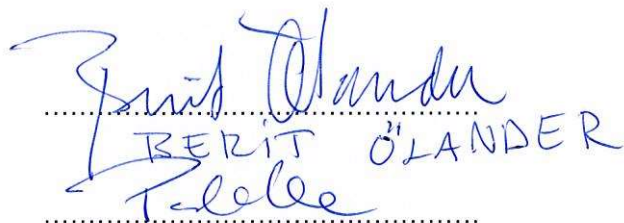 Berit Ölander
BERIT ÖLANDER